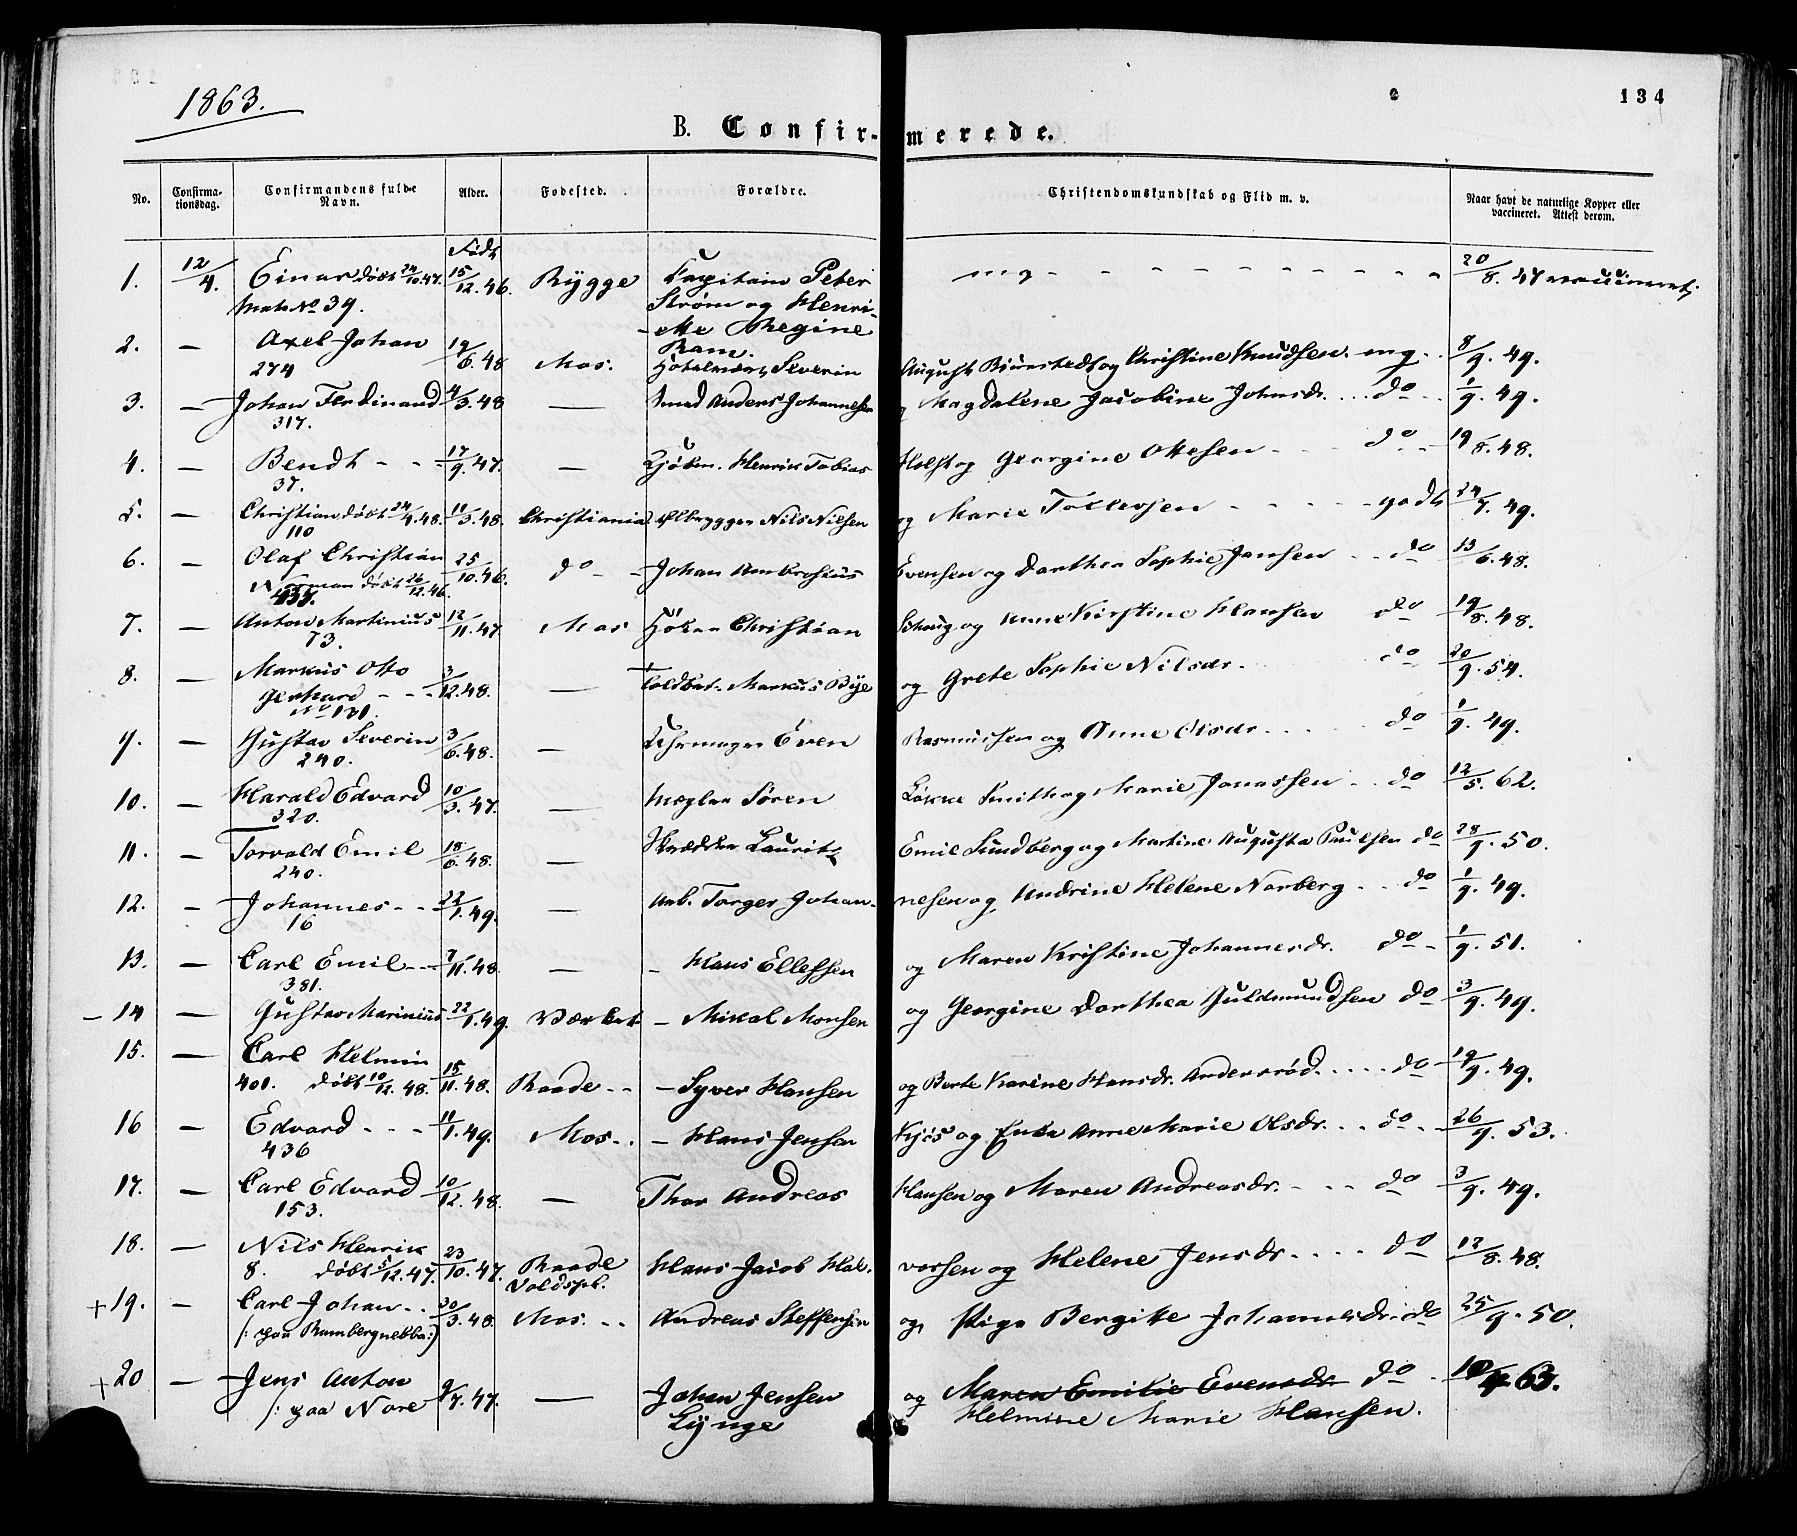 1863.
134
B. Confirmerede.
No. Confirmationsdag. Confirmandens fulde Navn. Alder. Fødested. Forældre. Christendomskundskab og Flid m. v. Naar havt de naturlige Kopper eller vaccineret. Attest derom.
Født
1. 12/4. Einar døbt 24/10.47. 15/12.46. Rygge Capitain Peter mg - - - 20/8.47 vaccineret;
Matr No 39. Strøm og Henri-
ette Regine
Ram.
2. — Axel Johan 19/6.48 Mos. Severin August Bjørnstedt og Christine Knudsen. mg. 8/9.49.
274
3. — Johan Ferdinand 4/3.48 — Smed Anders Johannesen og Magdalene Jacobine Johnsdr. do 1/9.49.
317.
4. — Bendt - - 17/9.47. — Henrik Tobias Holst og Georgine Ottesen - do - 19/8.48.
37.
5. — Christian døbt 24/4.48. 11/3.48. Christiania Ølbrygger Nils Nilsen og Marie Tollefsen - - - godt 24/7.49.
110
6. — Olaf Christian 25/10.46. do - Johan Ambrosius Evensen og Dorthea Sophie Jansen - - do 13/6.48.
Norman døbt 26/12.46.
7. — Anton Martinius 12/11.47. Mos Christian Schaug og Anne Kirstine Hansen do 19/8.48.
73.
8. — Markus Otto 3/12.48. — Toldbet. Markus Bye og Grete Sophie Nilsdr. do 20/9.54.
Gerhard - - -
No 131.
9. — Gustav Severin 3/6.48. — Uhrmager Even Rasmussen og Anne Olsdr. do 1/9.49.
240.
10. — Harald Edvard 10/3.47. — Mægler Søren Løkke Smith og Marie Jonassen - - do 12/5.62.
320.
11. — Torvald Emil 18/6.48. — Skrædder Laurits Emil Sundberg og Martine Augusta Paulsen do 28/9.50.
240.
12. — Johannes - - 22/1.49. — Arb. Torger Johan- nesen og Andrine Helene Norberg - - do 1/9.49.
16
13. — Carl Emil - - 7/11.48. — - Hans Ellefsen og Maren Kristine Johannesdr. do - 1/9.51.
381.
- 14 — Gustav Marinius 22/1.49. Værket - Mikal Monsen og Georgine Dorthea Guldmundsen do 3/9.49.
15. — Carl Helmin 15/11.48. Raade - - - Syver Hansen og Berte Karine Hansdr. Andersrød. - - do 19/9.49.
401. døbt 10/12.48.
16 — Edvard - - - 11/1.49. Mos. - - Hans Jensen og Anne Marie Olsdr. - - do - - 26/9.53.
436
17. — Carl Edvard 10/12.48. — Thor Andreas Hansen og Maren Andreasdr. - - - do 3/9.49.
153.
18. — Nils Henrik 23/10.47. Raade Hans Jacob Hal- vorsen og Helene Jensdr. - - - do 12/8.48.
8. døbt 5/12.47.
+ 19. — Carl Johan - - 30/3.48. Mos. - - Andreas Steffensen og Pige Bergitte Johannesdr. do 25/9.50.
+ 20 — Jens Anton 9/7.47. — Johan Jensen og Maren Emilie Evensdr do - 10/4 63.
/: paa Nore Lynge Helmine Marie Hansen.